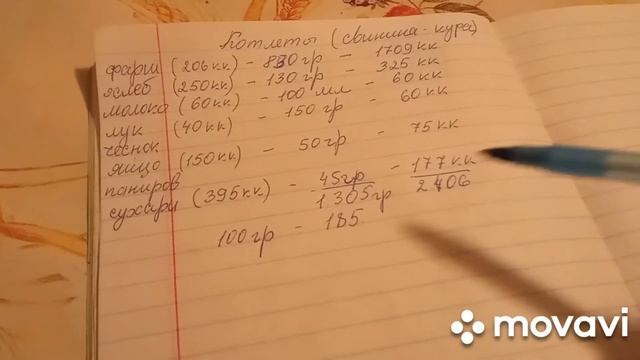 Котлеты (свинина-кура)
фарш (206кк) - 830 гр - 1709кк
хлеб (250кк) - 130 гр - 325 кк
молоко (60кк) - 100 мл - 60 кк
лук (40кк) - 150 гр - 60 кк
чеснок
яйцо (150кк) - 50гр - 75 кк
паниров
сухари (395кк) - 45гр - 177кк
1305гр 2406
100гр - 185
movavi